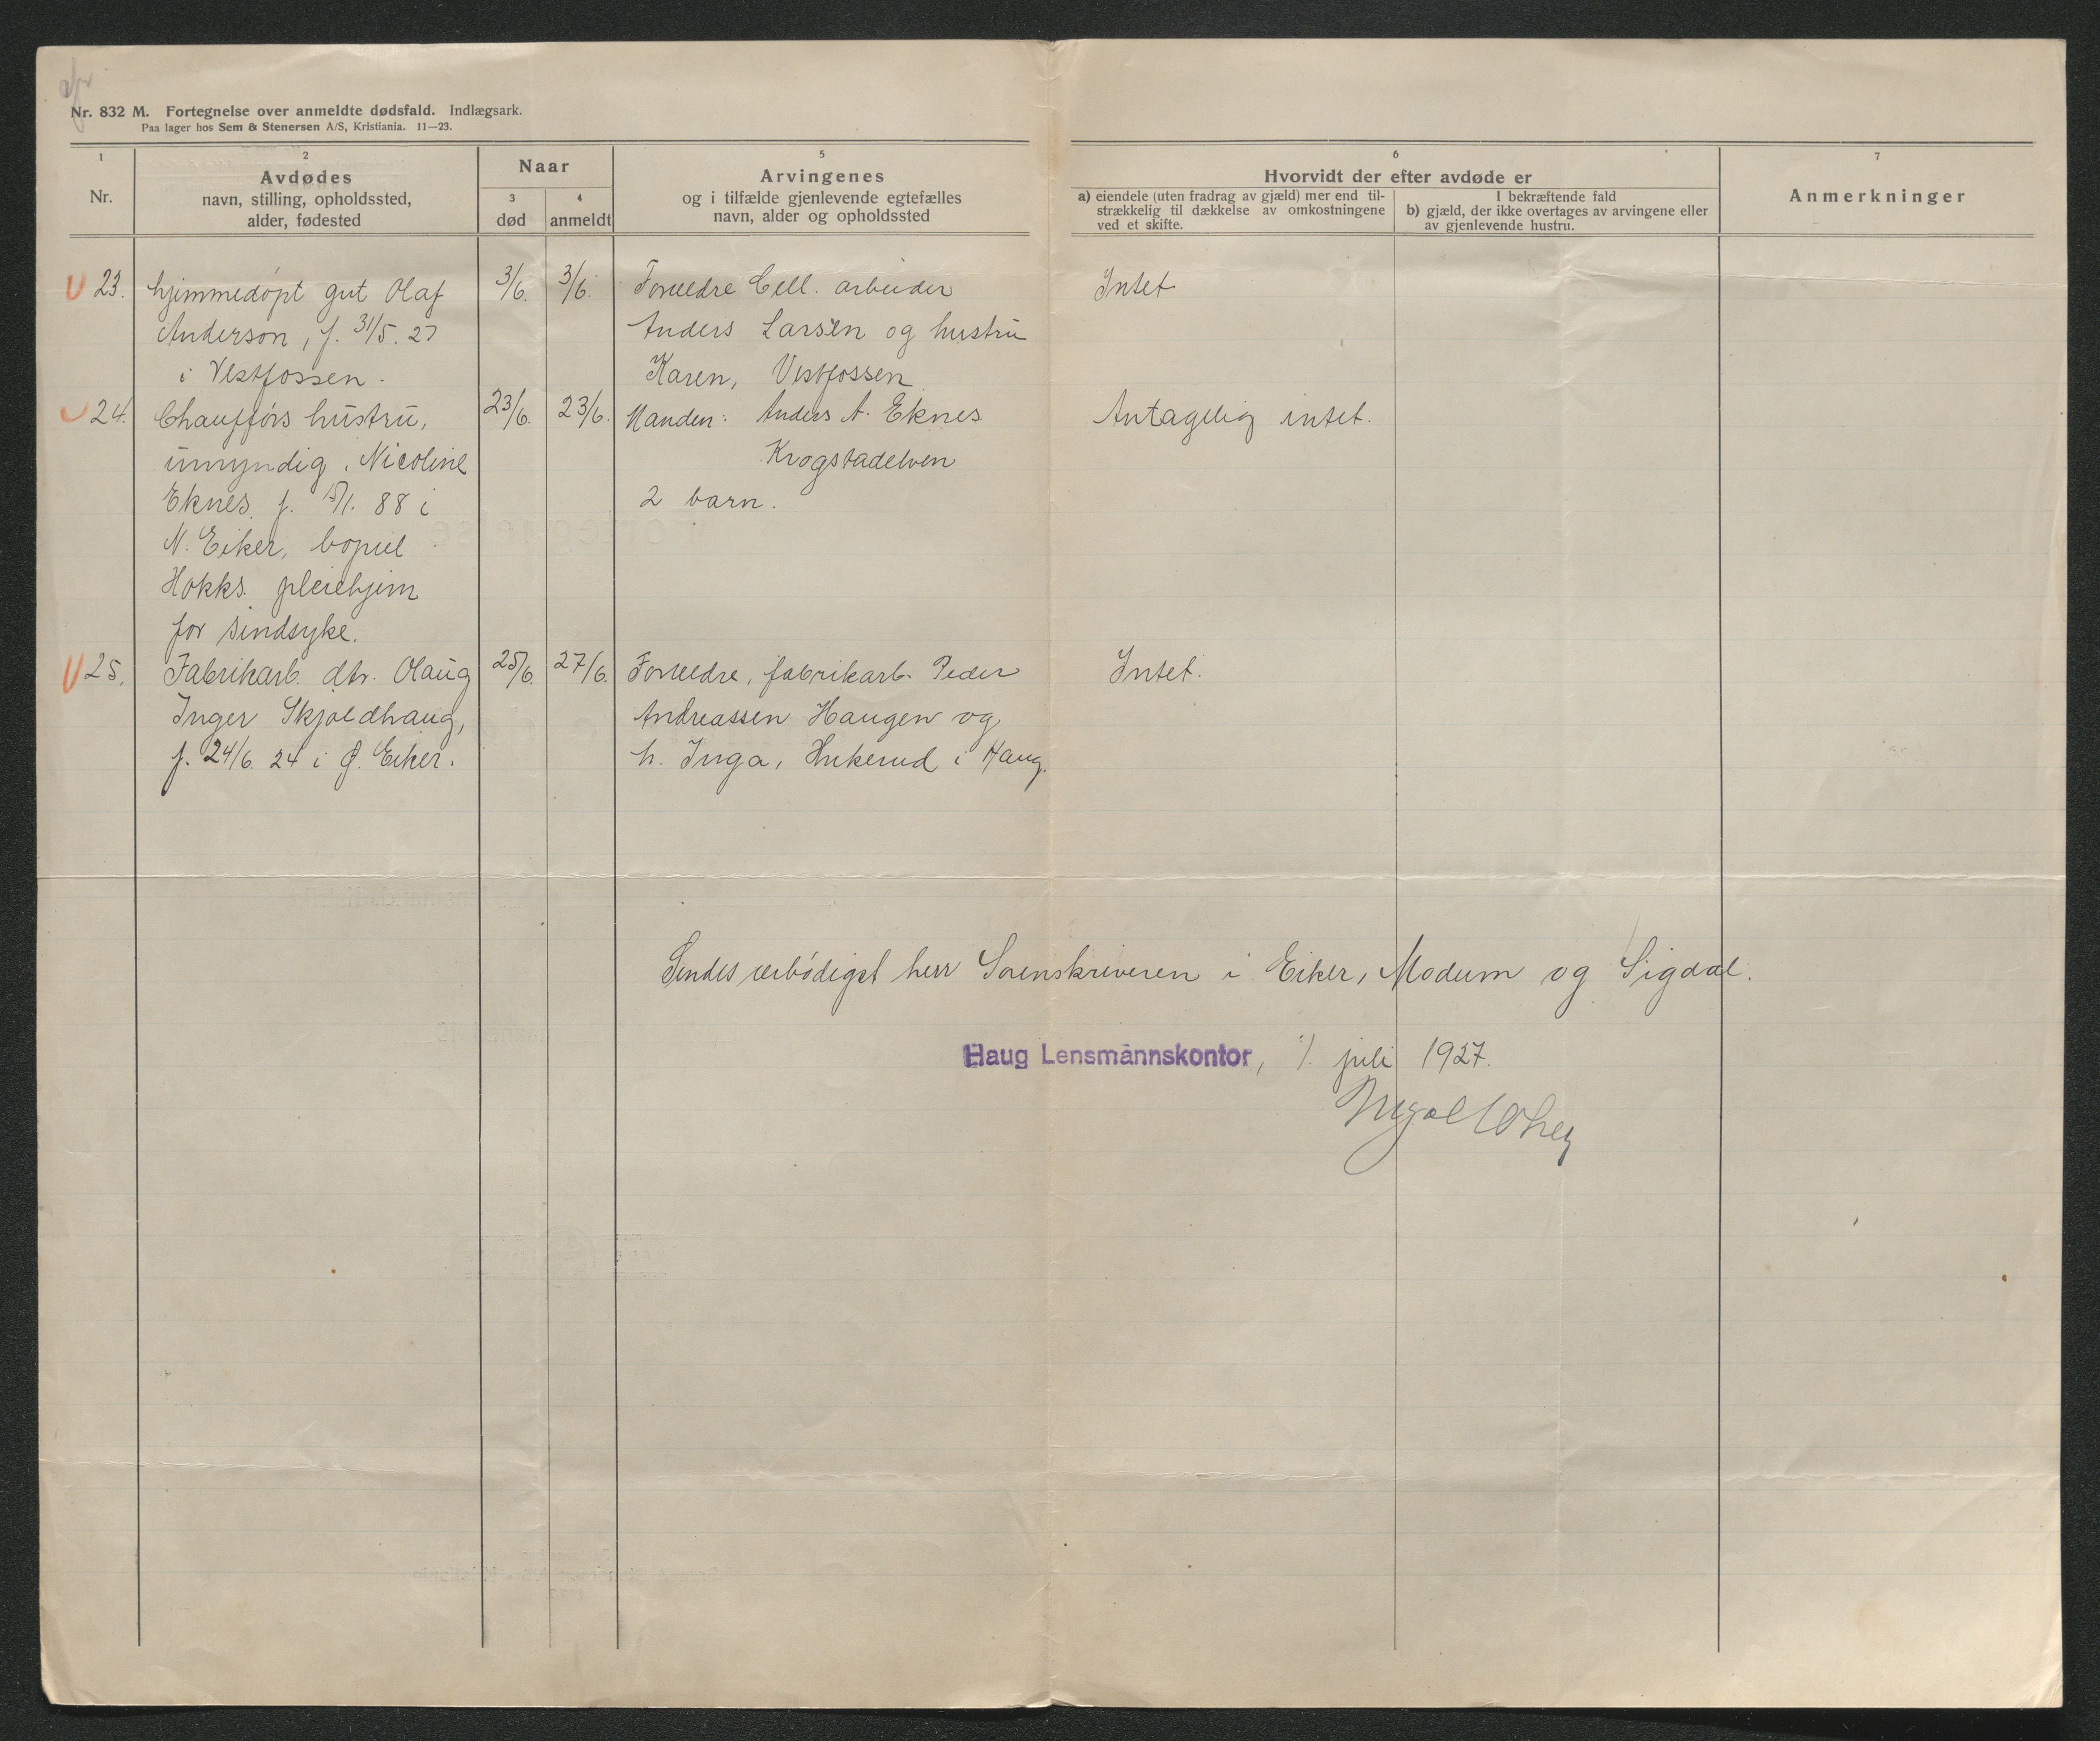 Nr. 832 M. Fortegnelse over anmeldte dødsfald. Indlægsark.
Paa lager hos Sem & Stenersen A/S, Kristiania. 11—23.
1
Nr.
2
Avdødes
navn, stilling, opholdssted,
alder, fødested
Naar
3
død
4
anmeldt
5
Arvingenes
og i tilfælde gjenlevende egtefælles
navn, alder og opholdssted
6
Hvorvidt der efter avdøde er
a) eiendele (uten fradrag av gjæld) mer end til-
strækkelig til dækkelse av omkostningene
ved et skifte.
I bekræftende fald
b) gjæld, der ikke overtages av arvingene eller
av gjenlevende hustru.
7
Anmerkninger
23. hjemmedøpt gut Olaf 3/6. 3/6. Forældre Cell. arbeider Intet
Anderson, f. 31/5. 27 Anders Larsen og hustru
i Vestfossen. Karen, Vestfossen
24. Chaufførs hustru, 23/6. 23/6. Manden: Anders A. Eknes Antagelig intet.
umyndig, Nicoline Krogstadelven
Eknes, f. 15/1. 88 i 2 barn.
N. Eiker, bopæl
Hokks. pleiehjem
for sindsyke.
25. Fabrikarb. dtr. Olaug 25/6. 27/6. Forældre, fabrikarb. Peder Intet.
Inger Skjøldhaug, Andreassen Haugen og
f. 24/6. 24 i Ø. Eiker. h. Inga, Hukerud i Haug.
Sendes ærbødigst herr Sorenskriveren i Eiker, Modum og Sigdal.
Haug Lensmannskontor, 1/. juli 1927.